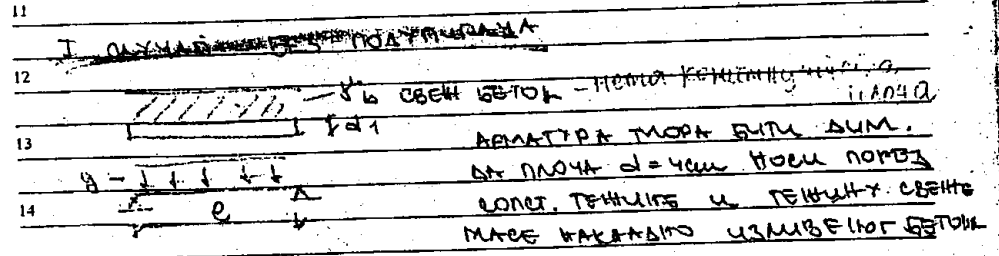 11
I СЛУЧАЈ БЕЗ ПОДУПИРАЧА
12
γb СВЕЖ БЕТОН - нема континуитета
плоча
d1
13
АРМАТУРА МОРА БИТИ ДИМ.
g
ДА ПЛОЧА d=4cm НОСИ ПОРЕД
14
l
СОПСТ. ТЕЖИНЕ И ТЕЖИНУ СВЕЖЕ
МАСЕ НАКНАДНО ИЗЛИВЕНОГ БЕТОНА